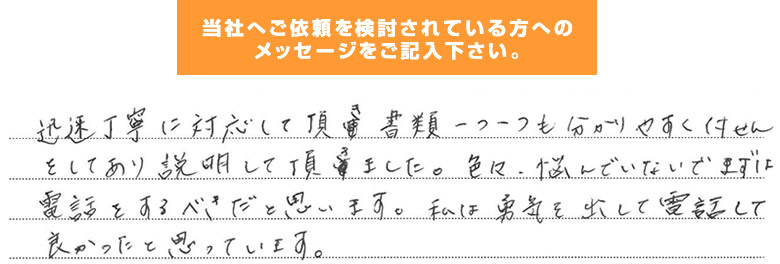 当社へご依頼を検討されている方への
メッセージをご記入下さい。
迅速丁寧に対応して頂き 書類一つ一つも分かりやすく付せん
をしてあり説明して頂きました。色々、悩んでいないでまずは
電話をするべきだと思います。私は勇気を出して電話して
良かったと思っています。